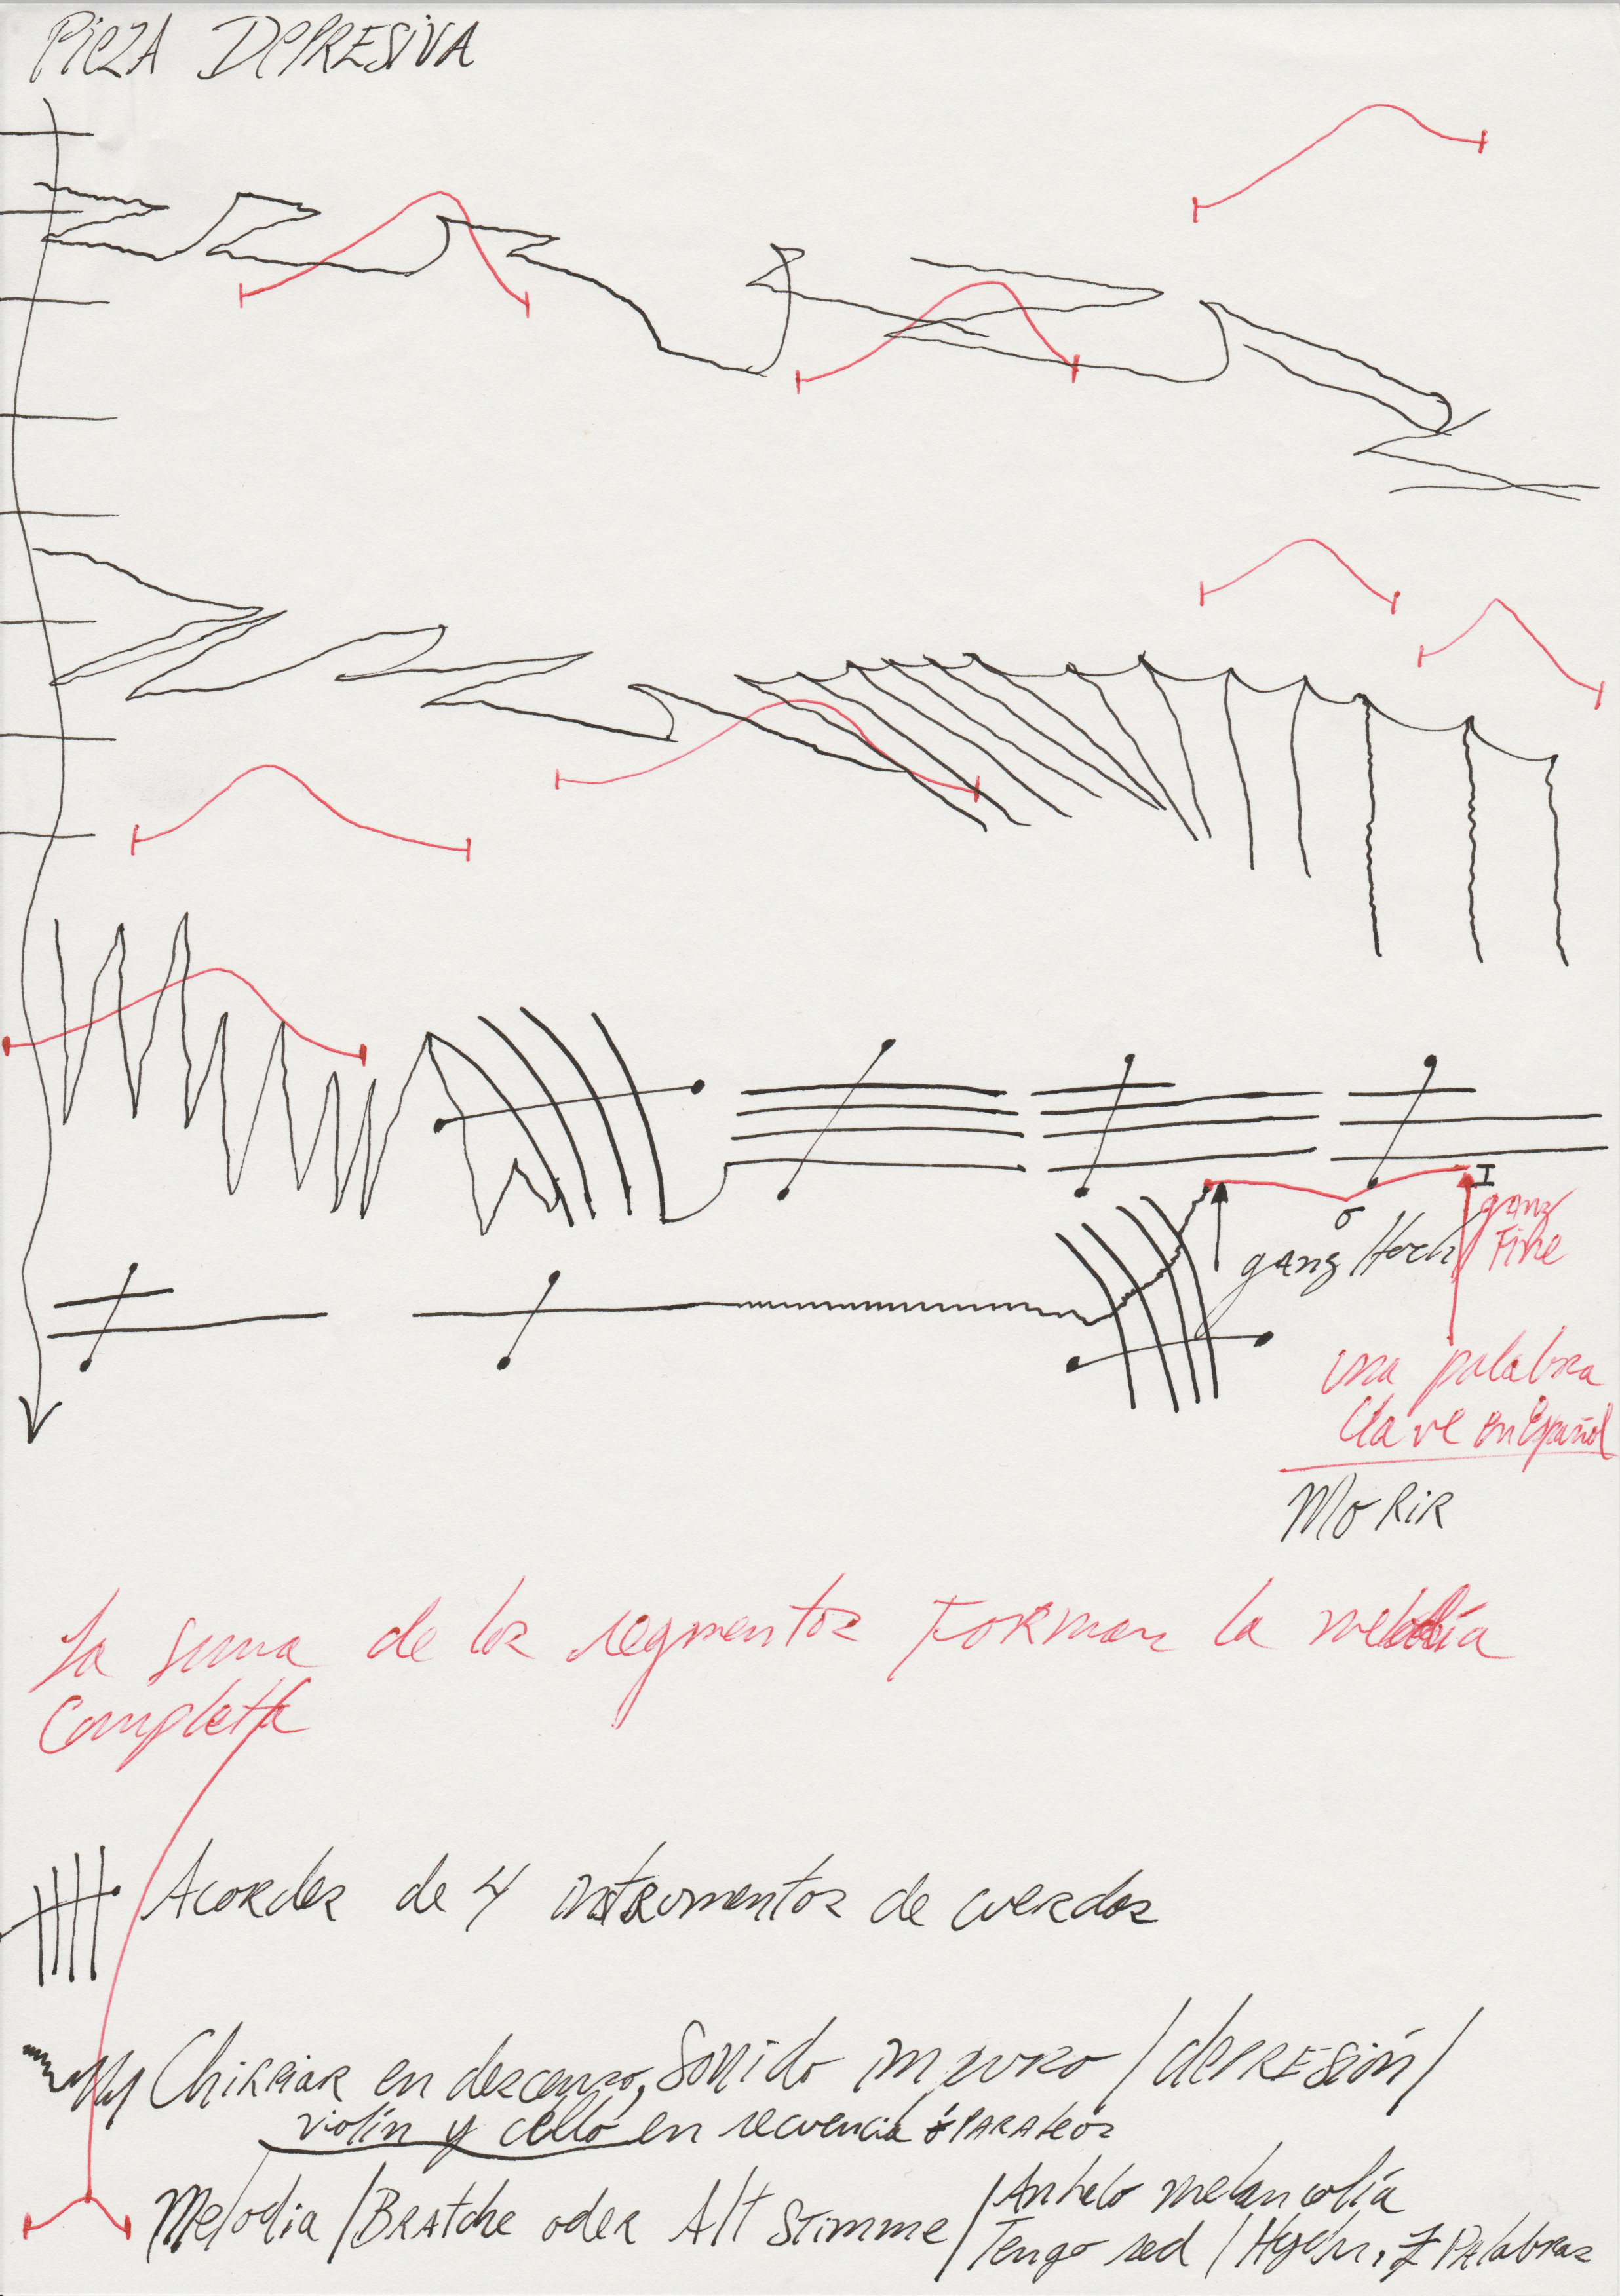 PieZA DePRESiVA
ganz Hoch
ganz
Fine
una palabra
Clave en Español
MoRiR
La suma de los segmentos Forman la melodía
Completa
Acordes de 4 instrumentos de cuerdas
Chirriar en descenso, Sonido impuro / dePRESión /
violín y cello en secuencia ó PARAleos
Melodia / BRAtche odeR Alt Stimme / Anhelo melancolía
Tengo sed / PAlabras